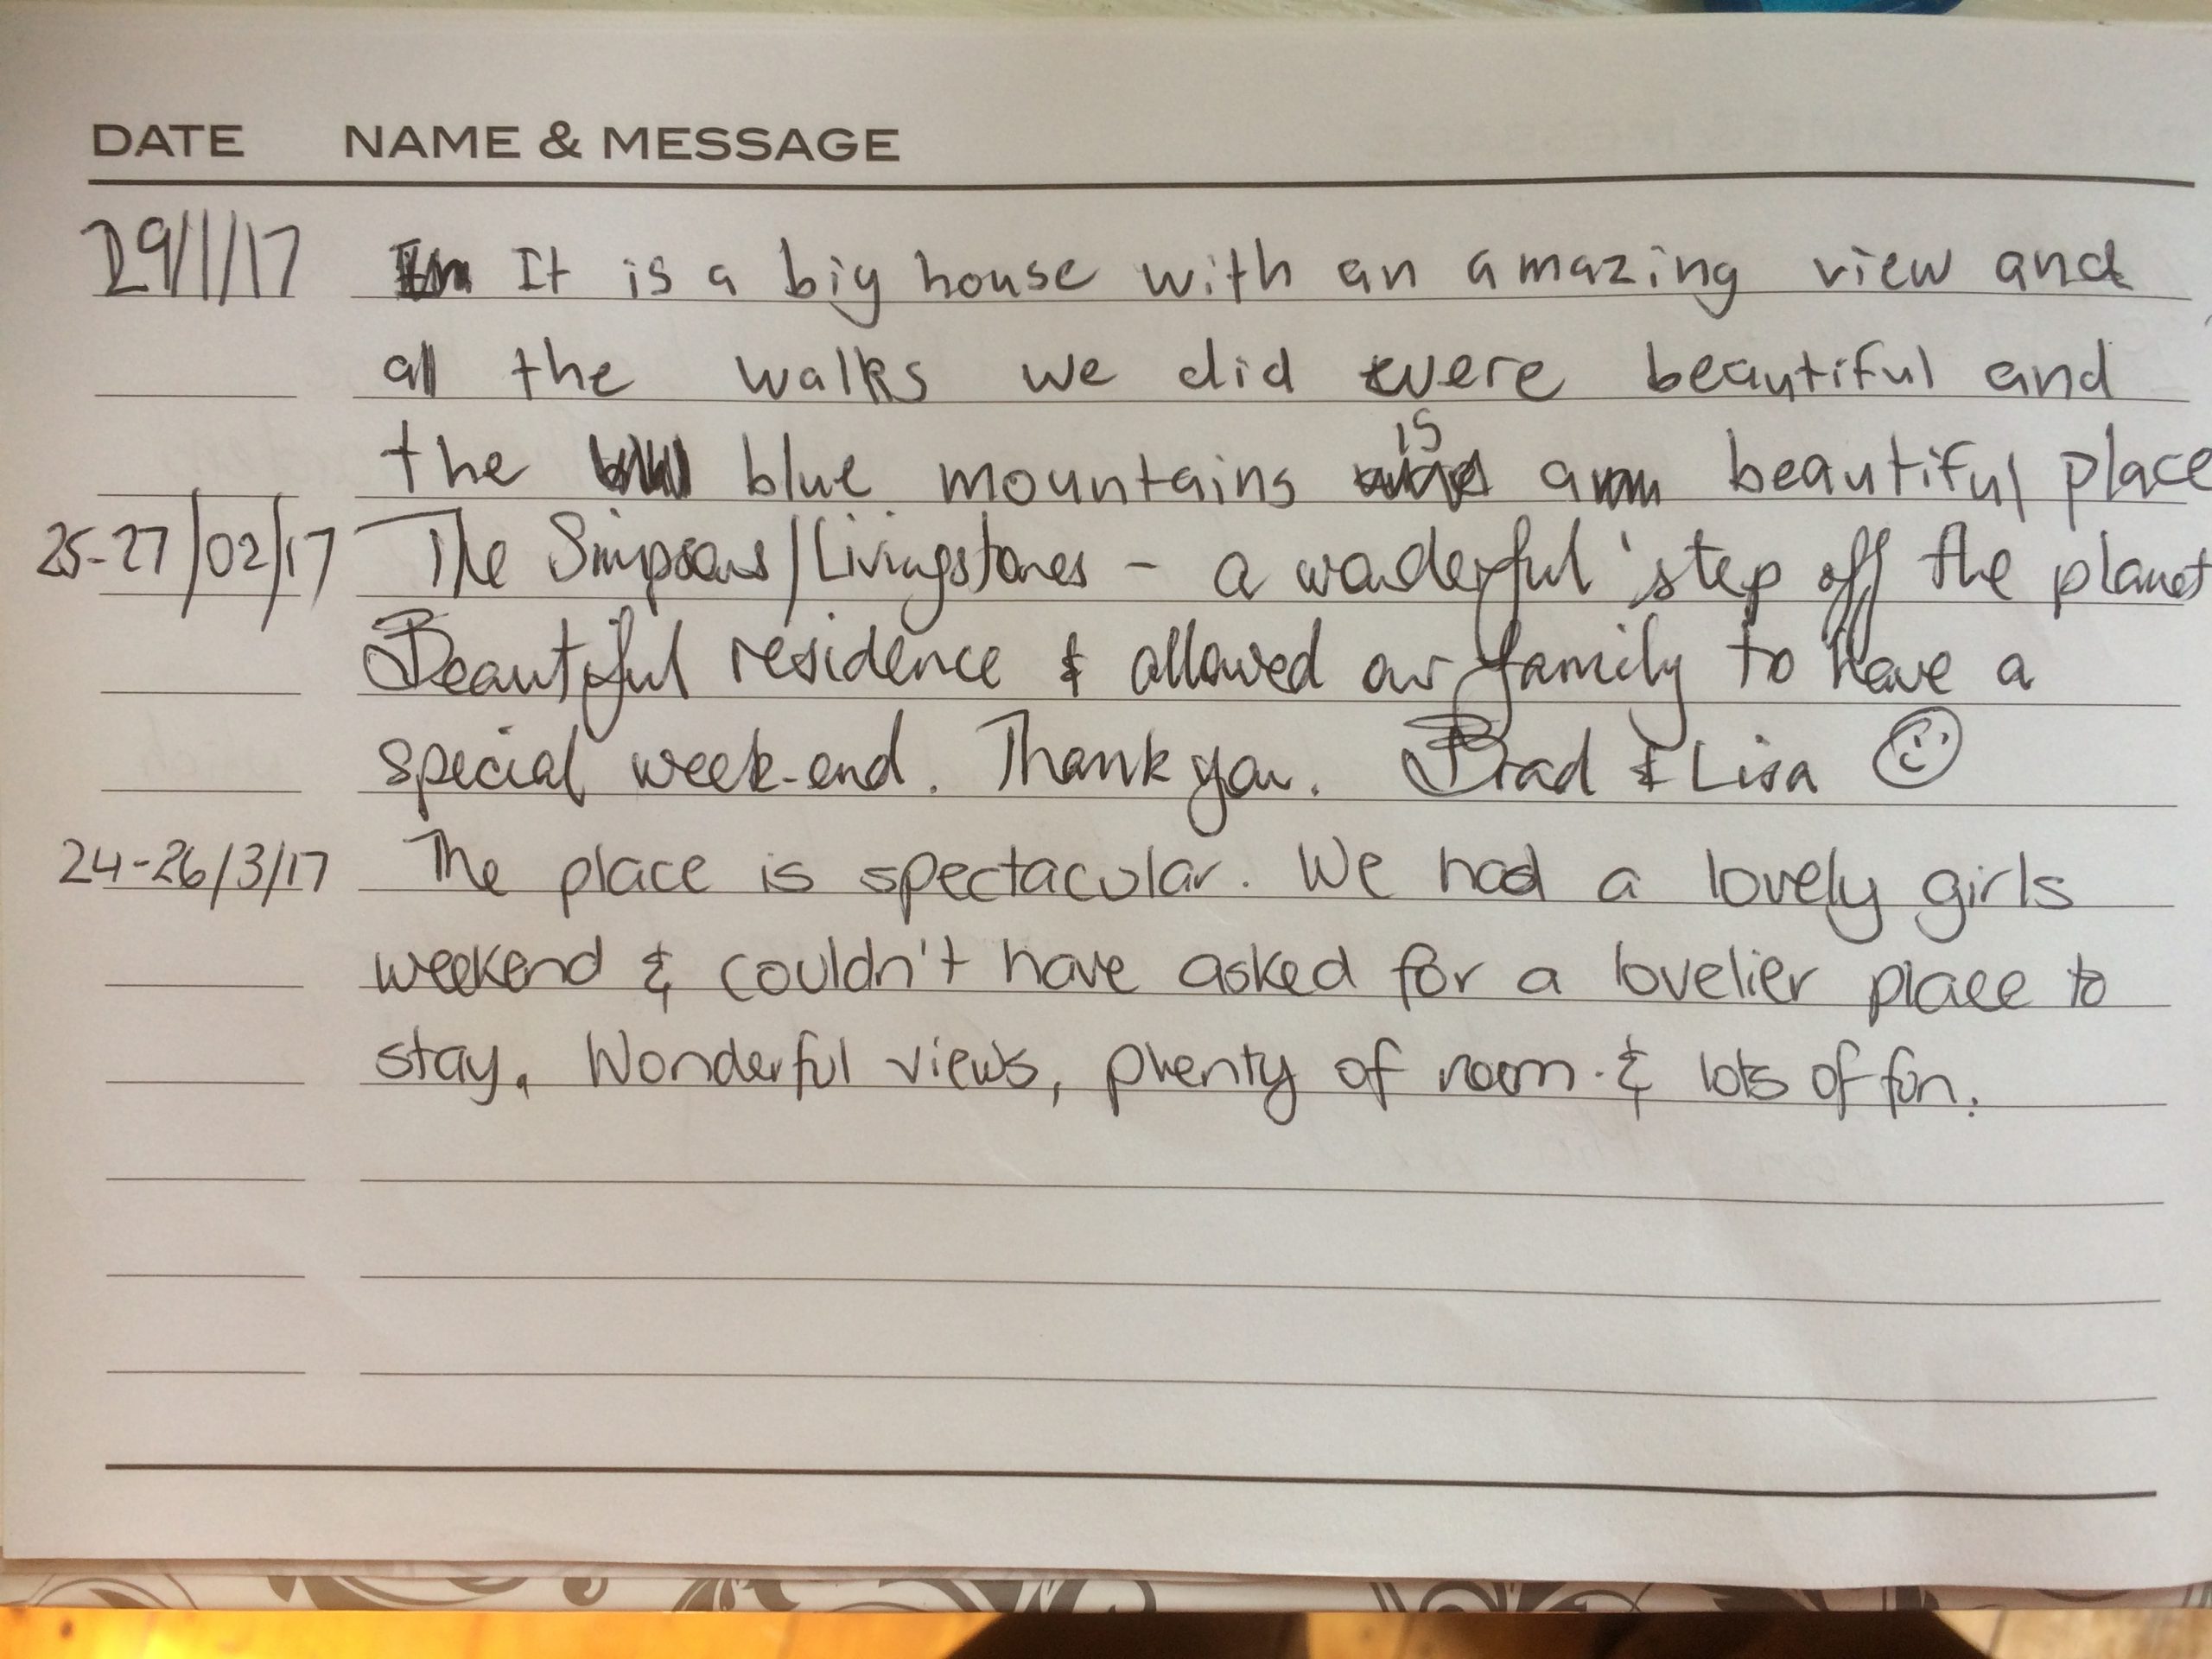 DATE NAME & MESSAGE
29/1/17 It is a big house with an amazing view and
all the walks we did were beautiful and
the blue mountains is a beautiful place
25-27/02/17 The Simpsons/Livingstones - a wonderful 'step off the planet
Beautiful residence & allowed our family to have a
special week-end. Thank you. Brad & Lisa
24-26/3/17 The place is spectacular. We had a lovely girls
weekend & couldn't have asked for a lovelier place to
stay. Wonderful views, plenty of room & lots of fun.